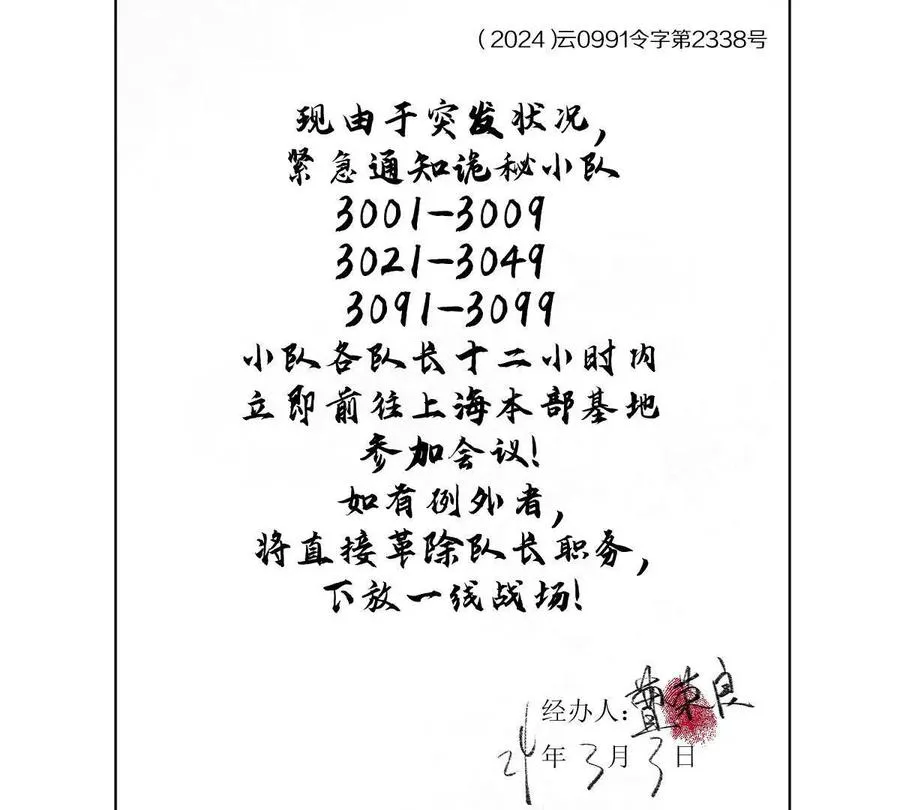 （2024）云0991令字第2338号
现由于突发状况，
紧急通知诡秘小队
3001-3009
3021-3049
3091-3099
小队各队长十二小时内
立即前往上海本部基地
参加会议！
如有例外者，
将直接革除队长职务，
下放一线战场！
经办人：黄荣良
24年3月3日